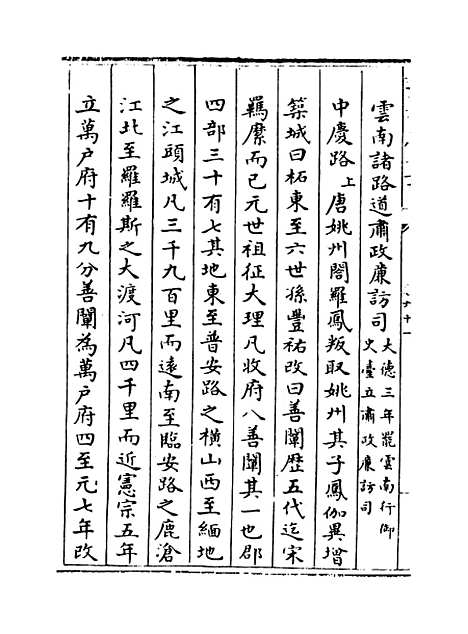 雲南諸路道肅政廉訪司大德三年罷雲南行御
史臺立肅政廉訪司
中慶路上唐姚州閤羅鳳叛取姚州其子鳳伽異增
築城曰柘東至六世孫豐祐改曰善闡歷五代迄宋
羈縻而已元世祖征大理凡收府八善闡其一也郡
四部三十有七其地東至普安路之橫山西至緬地
之江頭城凡三千九百里而遠南至臨安路之鹿滄
江北至羅羅斯之大渡河凡四千里而近憲宗五年
立萬户府十有九分善闡為萬户府四至元七年改